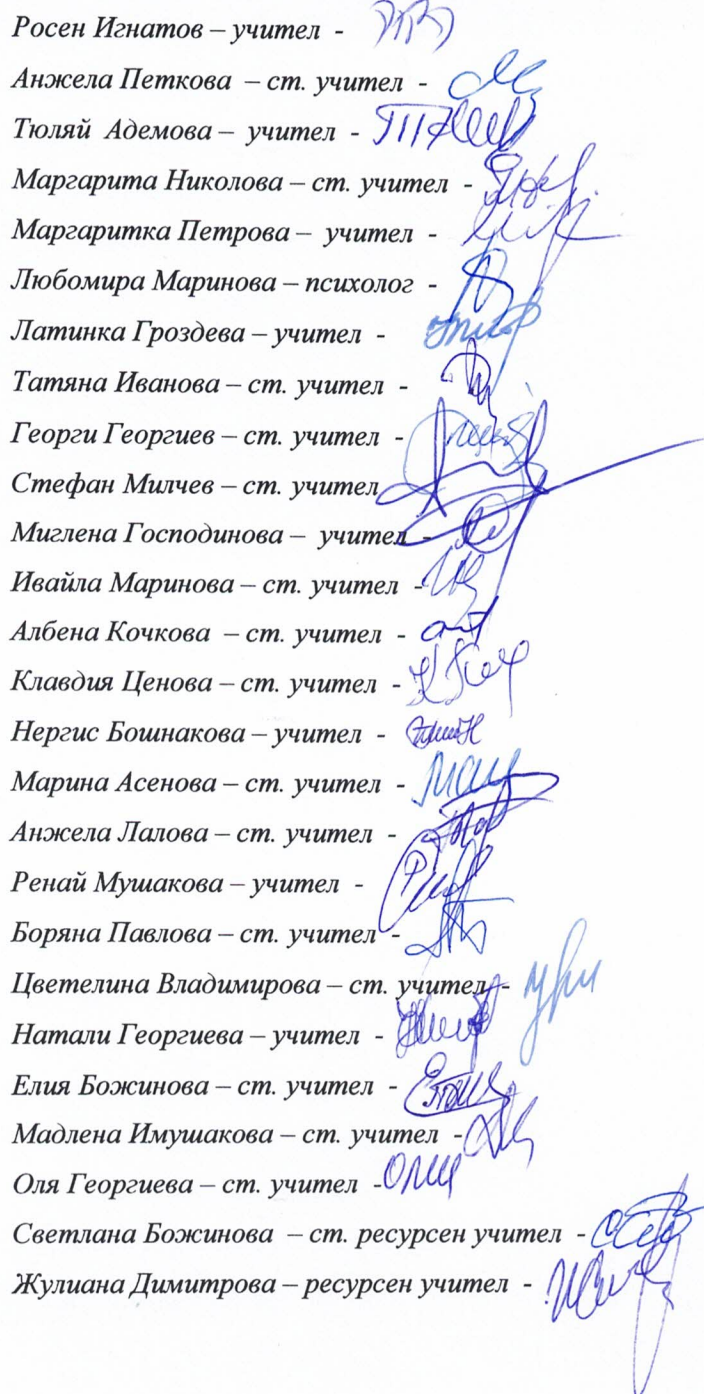 Росен Игнатов – учител -
Анжела Петкова – ст. учител -
Тюляй Адемова – учител -
Маргарита Николова – ст. учител -
Маргаритка Петрова – учител -
Любомира Маринова – психолог -
Латинка Гроздева – учител -
Татяна Иванова – ст. учител -
Георги Георгиев – ст. учител -
Стефан Милчев – ст. учител
Миглена Господинова – учител -
Ивайла Маринова – ст. учител -
Албена Кочкова – ст. учител -
Клавдия Ценова – ст. учител -
Нергис Бошнакова – учител -
Марина Асенова – ст. учител -
Анжела Лалова – ст. учител -
Ренай Мушакова – учител -
Боряна Павлова – ст. учител -
Цветелина Владимирова – ст. учител -
Натали Георгиева – учител -
Елия Божинова – ст. учител -
Мадлена Имушакова – ст. учител -
Оля Георгиева – ст. учител -
Светлана Божинова – ст. ресурсен учител -
Жулиана Димитрова – ресурсен учител -